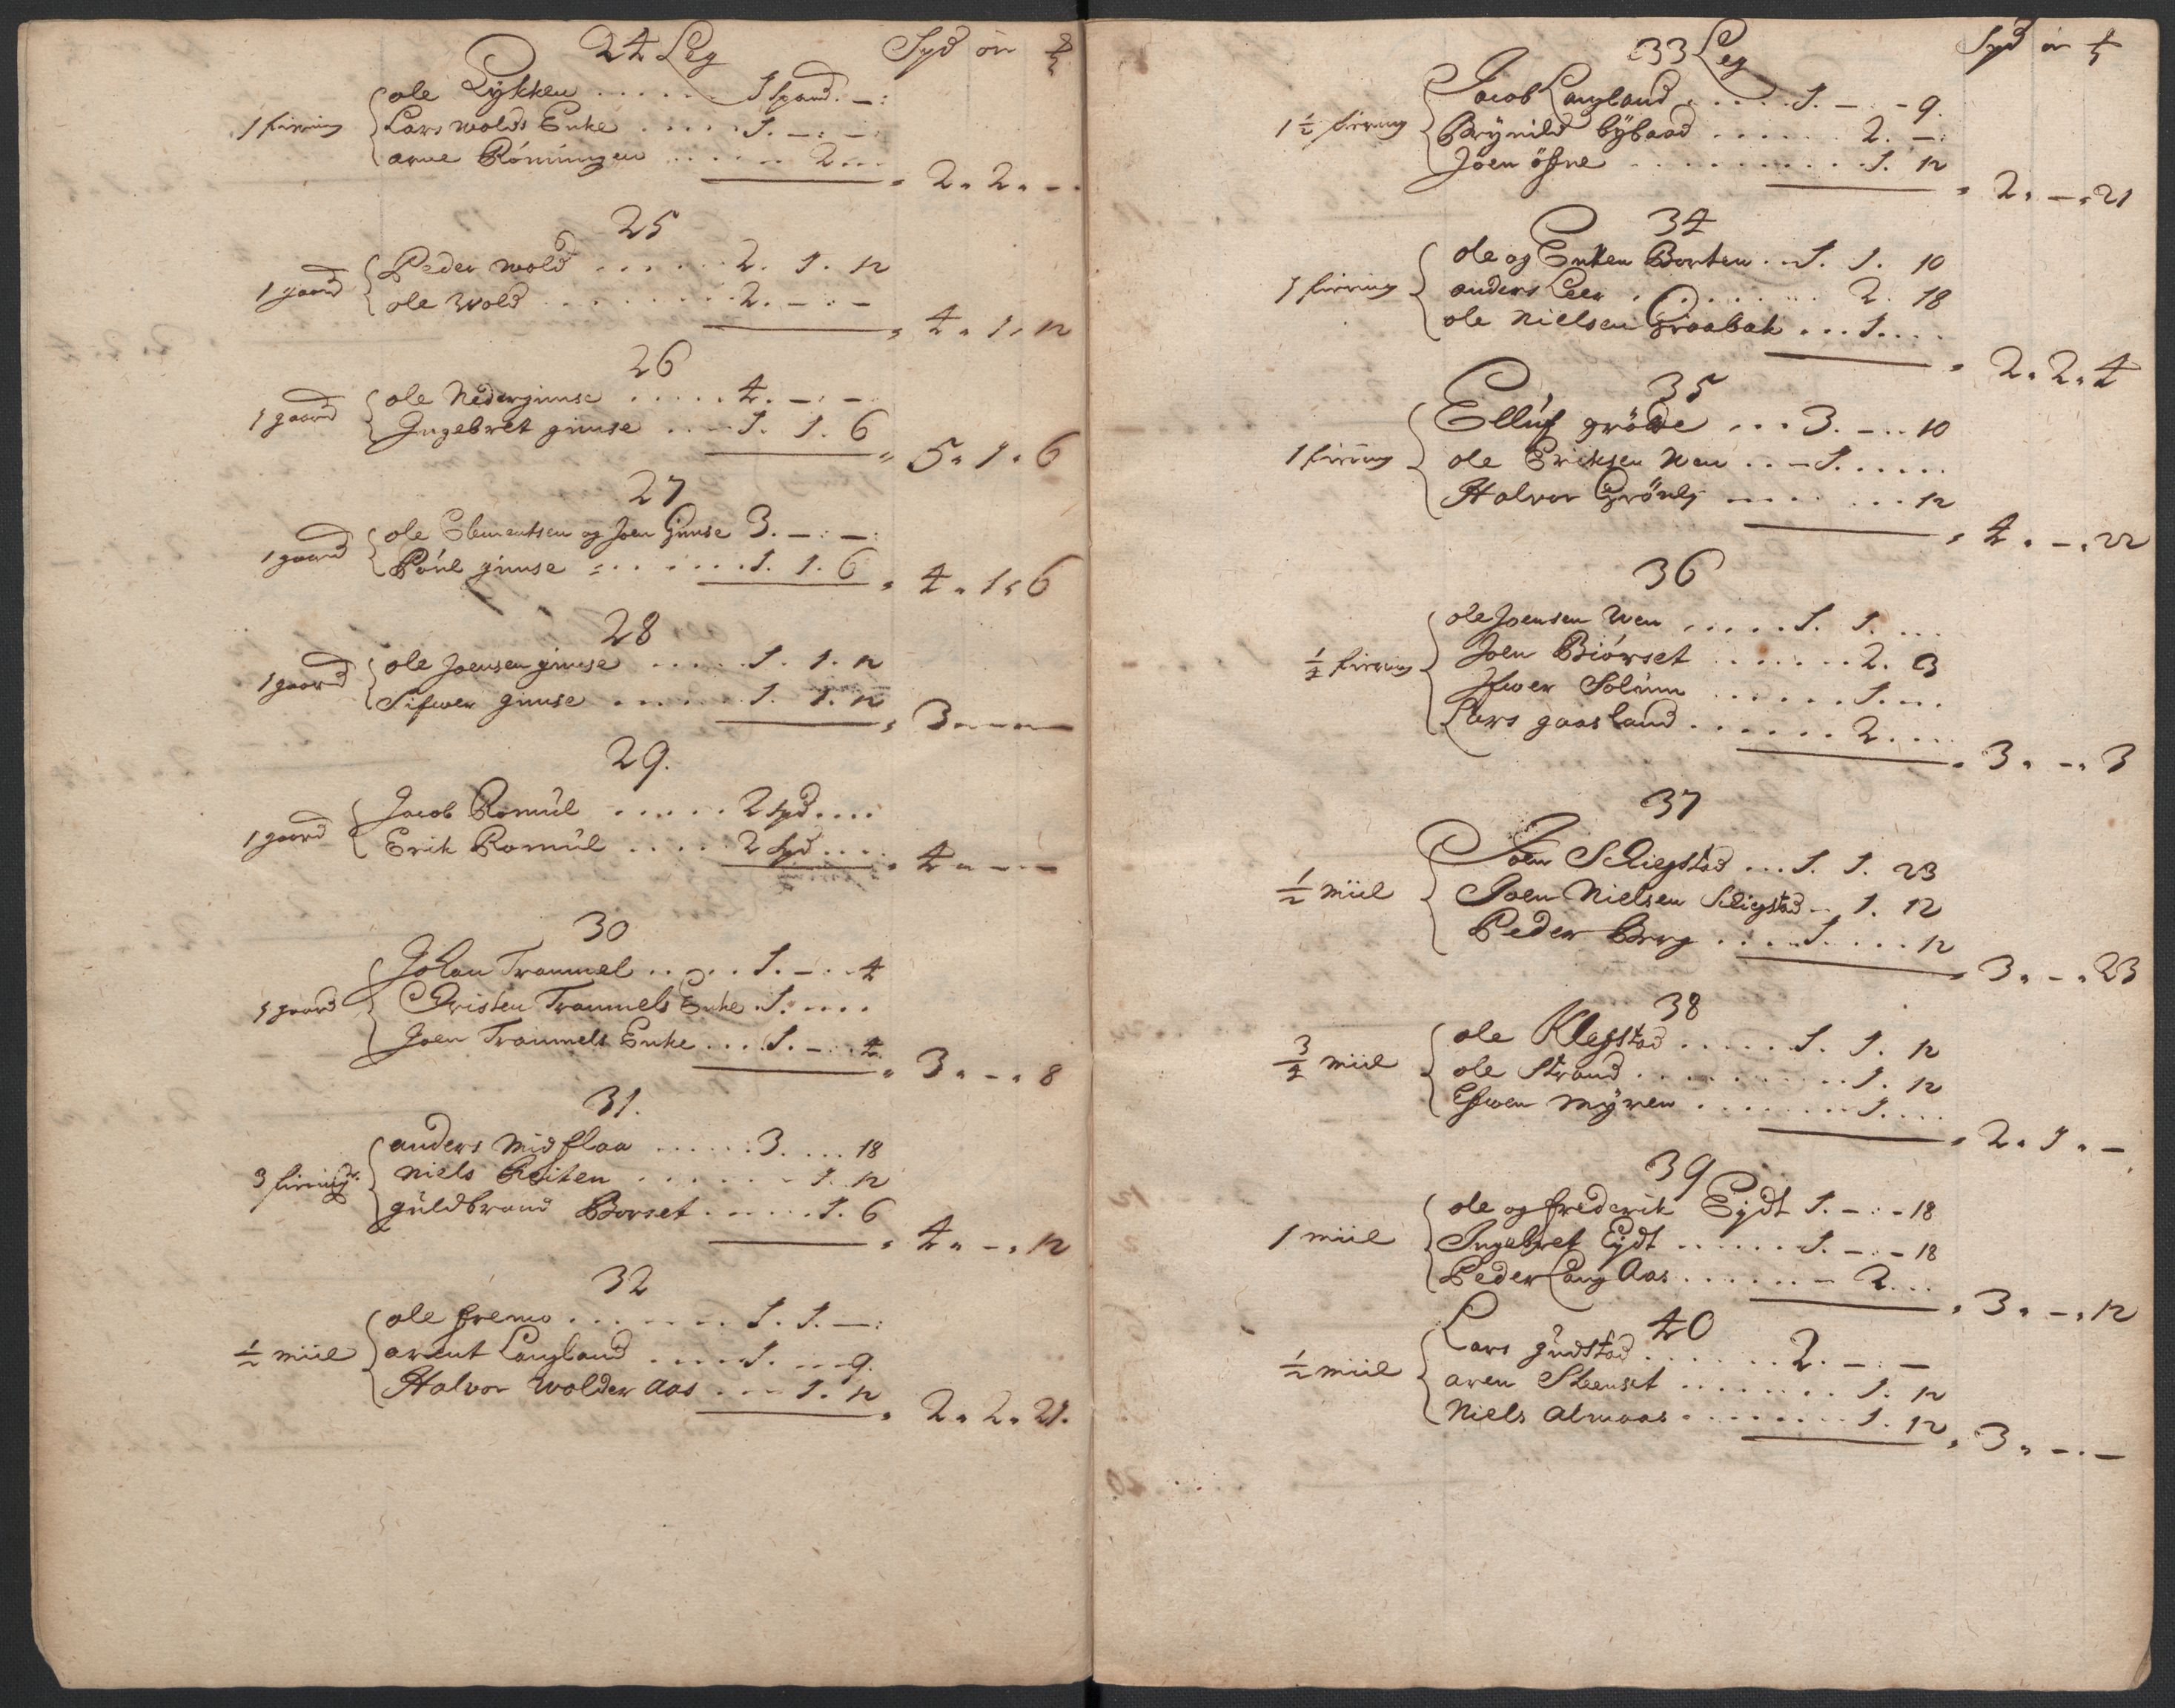 24 Leg Spd ör
ole Lykken . . . . . . 1 spand. — :
1 firring Lars wolds Enke . . . . . 1. — . —
arne Röningen . . . . . . 2 . . .
2. 2. —
25
Peder wold . . . . . . 2. 1. 12
1 gaard ole Wold . . . . . . . . 2. — . —
4. 1. 12
26
ole Nederginnse . . . . . 4. — . —
1 gaard Ingebret ginnse . . . . 1. 1. 6
5. 1. 6
27
ole Clemensen og Joen Ginnse 3. — : — :
1 gaard Poul ginnse . . . . . . 1. 1. 6
4. 1. 6
28
ole Joensen ginnse . . . . . 1. 1. 12
1 gaard Sifwer ginnse . . . . . 1. 1. 12
3. — . —
29.
Jacob Romül . . . . . 2 spd . . . .
1 gaard Erik Romül . . . . . 2 spd . . . .
4. — . —
30
Johan Trammel . . . . . 1. — . 4
1 gaard Christen Trammels Enke . 1. . . . .
Joen Trammels Enke . . . 1. — . 4
3. — . 8
31.
anders Midflaa . . . . . . 3. . . . 18
3 firringr. Niels Reiten . . . . . . . 1. 12
güldbrand Borset . . . . . 1. 6
4. — . 12
32
ole fremo . . . . . . . 1. 1. — :
½ miil arent Langland . . . . . 1. . . . 9.
Halvor Wolden Aas . . . . 1. 12
2. 2. 21.
33 Leg Spd ör
Jacob Langland . . . . . 1. — . — 9.
1½ firring Brynild bybaad . . . . . . 2. — :
Joen öfne . . . . . . . . . . 1. 12
2. — . 21
34
ole og Enken Borten . . 1. 1. 10
1 firring anders Leer . . . . . . . . . 2. 18
ole Nielsen Graabak . . . 1. . . .
2. 2. 4
35
Ellúf gröde . . . 3. — . . 10
1 firring ole Ericksen Wen . . — 1. . . . . .
Halvor Grönlj . . . . . . . . 12
4. — . 22
36
ole Joensen Wen . . . . . 1. 1. . . .
½ firring Joen Biórset . . . . . . . 2. 3
Ifwer Solúm . . . . . . 1. . . .
Lars gaasland . . . . . . 2. . . .
3. — . 3
37
Joen Schiegstad . . . 1. 1. 23
½ miil Joen Nielsen Skiegstad . . 1. 12
Peder Berg . . . . 1. . . . 12
3. — . 23
38
ole Klegstad . . . . . . 1. 1. 12
¾ miil ole Strand . . . . . . . . . . 1. 12
Esswen Myren . . . . . . . . 1. . . .
2. 1. —
39
ole og frederik Eydt 1. — . — 18
1 miil Ingebret Eydt . . . . . . 1. — . — 18
Peder Lang Aas . . . . . . — 2. . .
3. — . 12
40
Lars gúdstad . . . . . . . 2. — . —
½ miil aren Steenset . . . . . . . 1. 12
Niels Almaas . . . . . . . . 1. 12
3. — . —